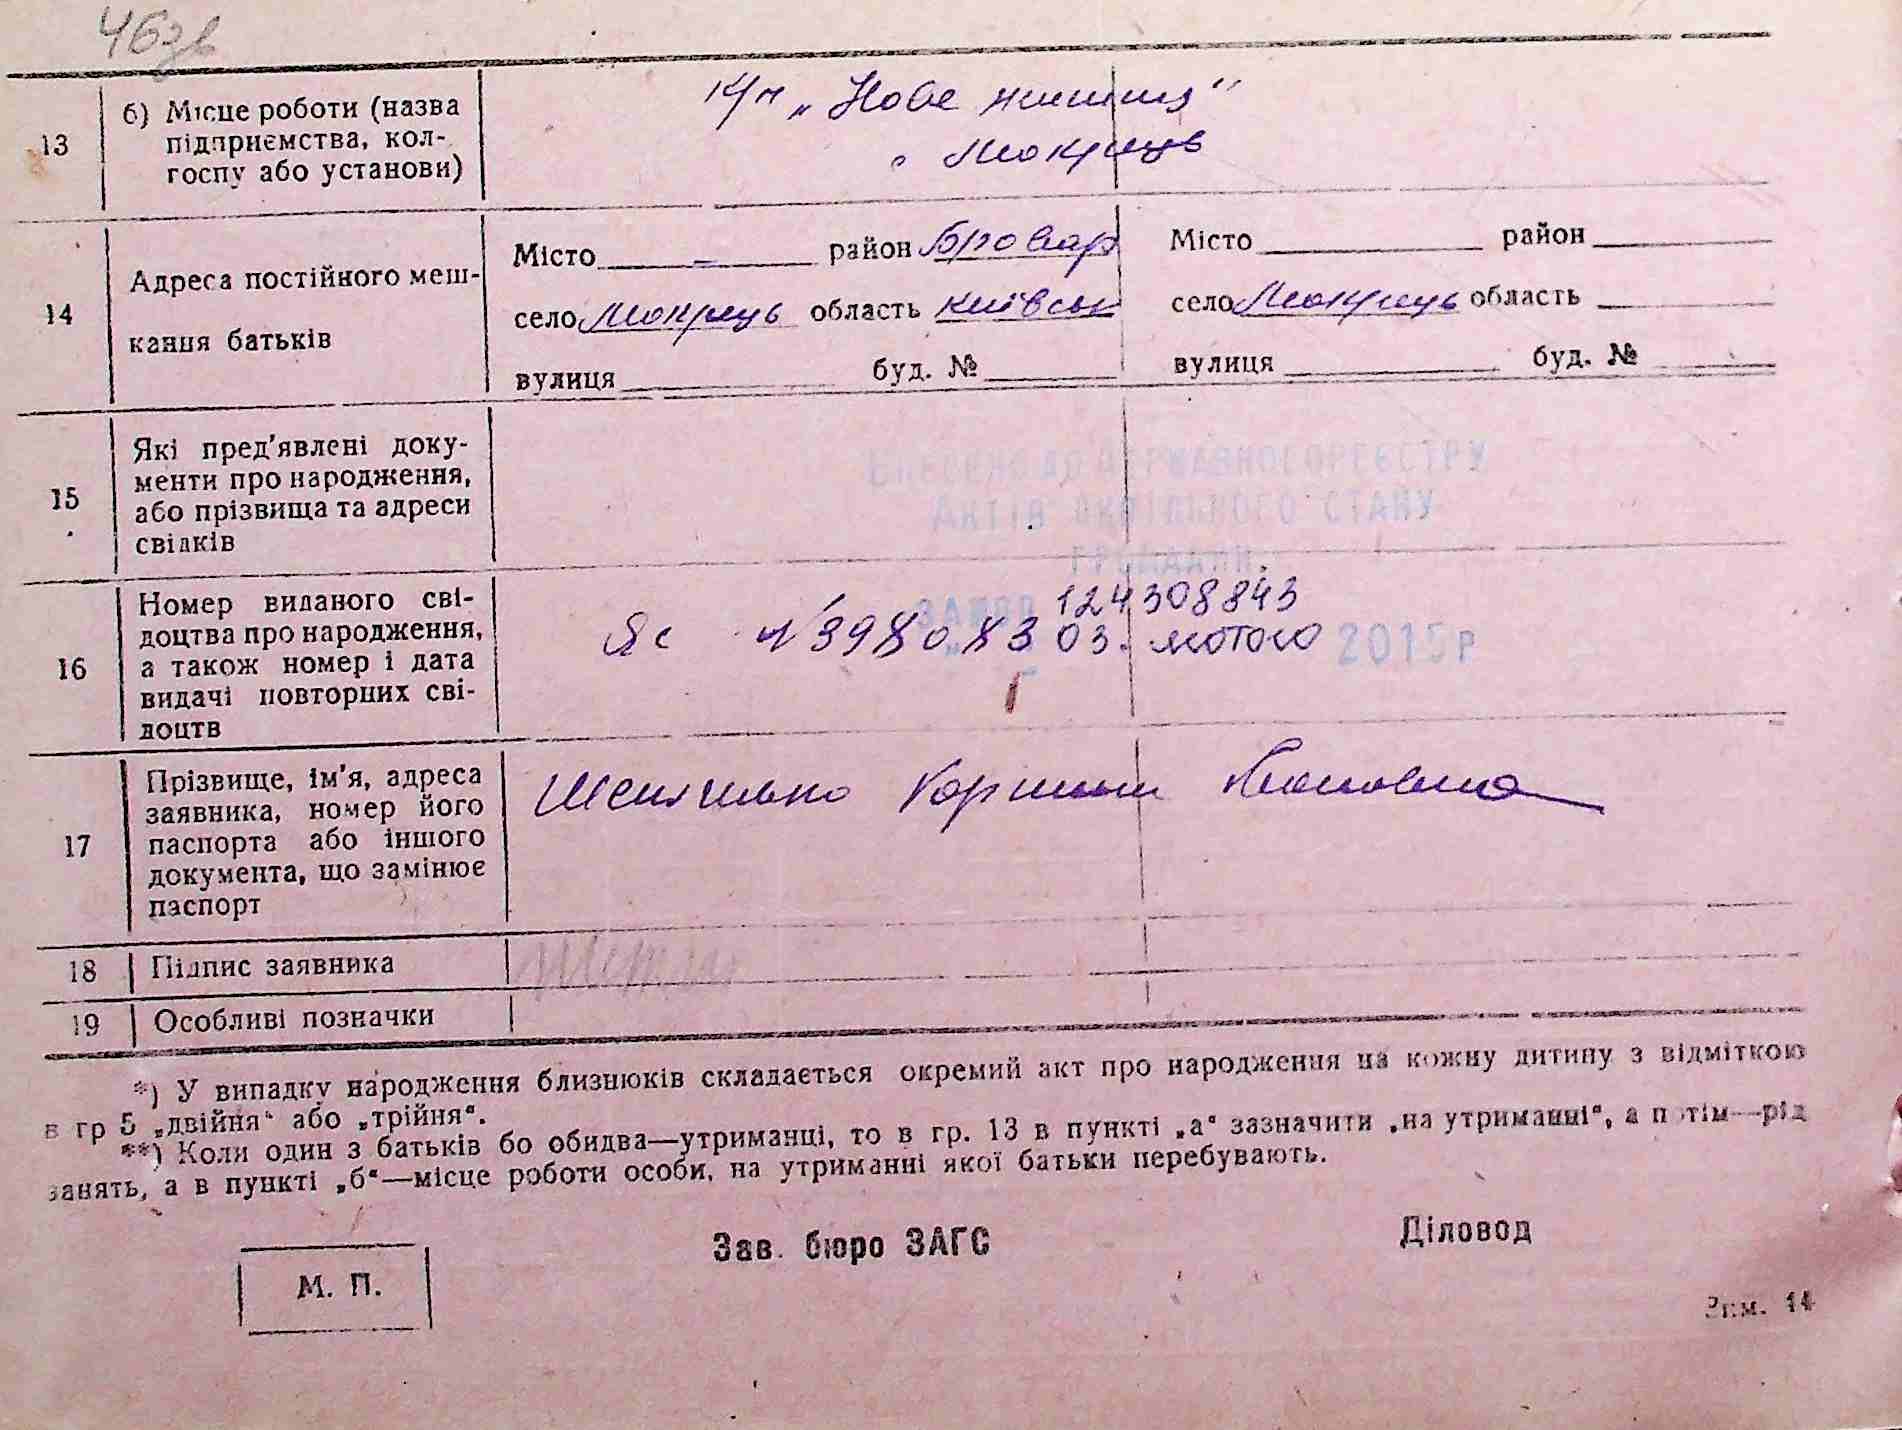 46зв
13
б) Місце роботи (назва
підприємства, кол-
госпу або установи)
к/г „Нове життя"
с Мокрець
14
Адреса постійного меш-
кання батьків
Місто - район Бровар
село Мокрець область Київськ
вулиця буд. №
Місто район
село Мокрець область
вулиця буд. №
15
Які пред'явлені доку-
менти про народження,
або прізвища та адреси
свідків
ВНЕСЕНО ДО ДЕРЖАВНОГО РЕЄСТРУ
АКТІВ ЦИВІЛЬНОГО СТАНУ
ГРОМАДЯН
16
Номер виданого сві-
доцтва про народження,
а також номер і дата
видачі повторних сві-
доцтв
124308843
03. лютого 2015р
17
Прізвище, ім'я, адреса
заявника, номер його
паспорта або іншого
документа, що замінює
паспорт
18
Підпис заявника
19
Особливі позначки
*) У випадку народження близнюків складається окремий акт про народження на кожну дитину з відміткою
в гр 5 „двійня“ або „трійня“.
**) Коли один з батьків бо обидва—утриманці, то в гр. 13 в пункті „а“ зазначити „на утриманні“, а потім—рід
занять, а в пункті „б“—місце роботи особи, на утриманні якої батьки перебувають.
М. П.
Зав. бюро ЗАГС
Діловод
Зам. 14